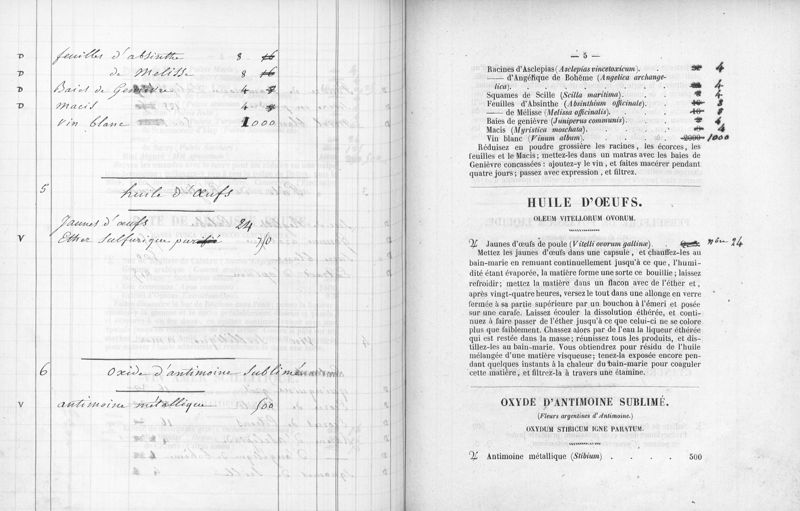 D feuilles d'absinthe 8 16
D de Melisse 8 16
D Baies de Genievre 4
D macis 4
vin blanc 1000
5 huile d'œufs
Jaunes d'œufs 24
V Ether Sulfurique 750
6 Oxide d'antimoine sublimé
V antimoine métallique 500
— 5 —
Racines d'Asclepias (Asclepias vincetoxicum). 4
—— d'Angélique de Bohême (Angelica archange-
lica). 4
Squames de Scille (Scilla maritima). 4
Feuilles d'Absinthe (Absinthium officinale). 16 8
—— de Mélisse (Melissa officinalis). 16 8
Baies de genièvre (Juniperus communis). 4
Macis (Myristica moschata). 4
Vin blanc (Vinum album). 2000 1000
Réduisez en poudre grossière les racines, les écorces, les
feuilles et le Macis; mettez-les dans un matras avec les baies de
Genièvre concassées: ajoutez-y le vin, et faites macérer pendant
quatre jours; passez avec expression, et filtrez.
HUILE D'ŒUFS.
OLEUM VITELLORUM OVORUM.
♃ Jaunes d'œufs de poule (Vitelli ovorum gallinæ). 24
Mettez les jaunes d'œufs dans une capsule, et chauffez-les au
bain-marie en remuant continuellement jusqu'à ce que, l'humi-
dité étant évaporée, la matière forme une sorte ce bouillie; laissez
refroidir; mettez la matière dans un flacon avec de l'éther et,
après vingt-quatre heures, versez le tout dans une allonge en verre
fermée à sa partie supérieure par un bouchon à l'émeri et posée
sur une carafe. Laissez écouler la dissolution éthérée, et conti-
nuez à faire passer de l'éther jusqu'à ce que celui-ci ne se colore
plus que faiblement. Chassez alors par de l'eau la liqueur éthérée
qui est restée dans la masse; réunissez tous les produits, et dis-
tillez-les au bain-marie. Vous obtiendrez pour résidu de l'huile
mélangée d'une matière visqueuse; tenez-la exposée encore pen-
dant quelques instants à la chaleur du bain-marie pour coaguler
cette matière, et filtrez-la à travers une étamine.
OXYDE D'ANTIMOINE SUBLIMÉ.
(Fleurs argentines d'Antimoine.)
OXYDUM STIBICUM IGNE PARATUM.
♃ Antimoine métallique (Stibium) . . . . 500